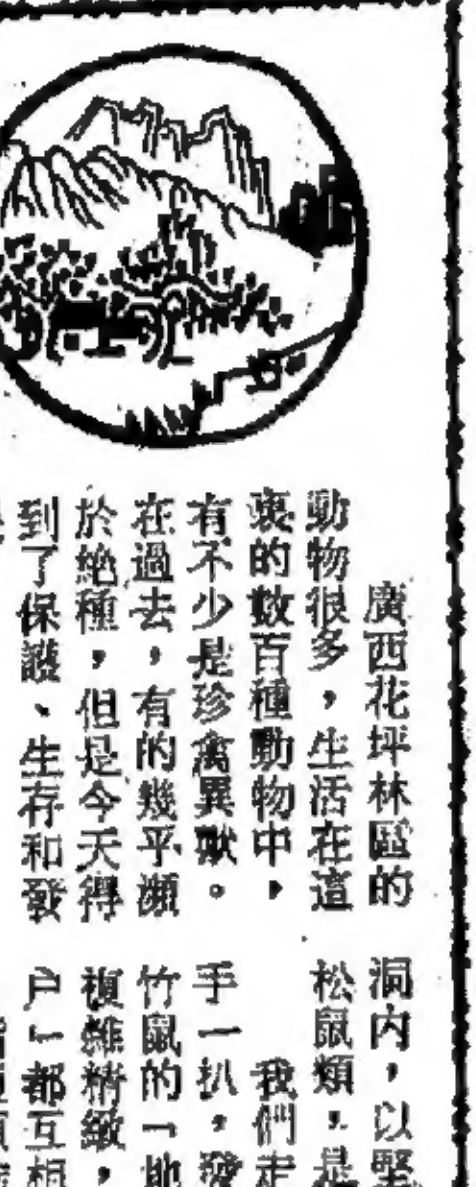 廣西花坪林區的
動物很多，生活在這
裏的數百種動物中，
有不少是珍禽異獸。
在過去，有的幾乎瀕
於絶種，但是今天得
到了保護、生存和發
洞内，以堅
松鼠類，是
我們走
手一扒，發
竹鼠的「地
複雜精緻，
户」都互相